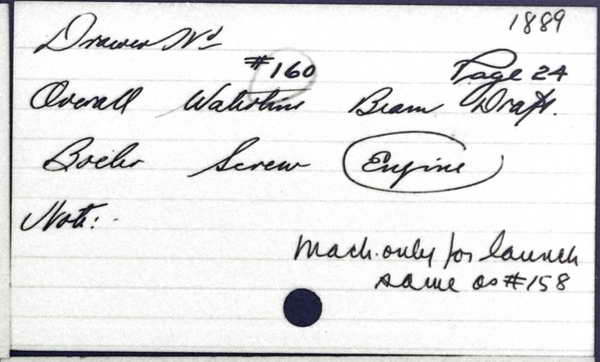 1889
Drawer No
#160 Page 24
Overall Waterline Beam Draft.
Boiler Screw Engine
Note:
Mach. only for launch
same as #158